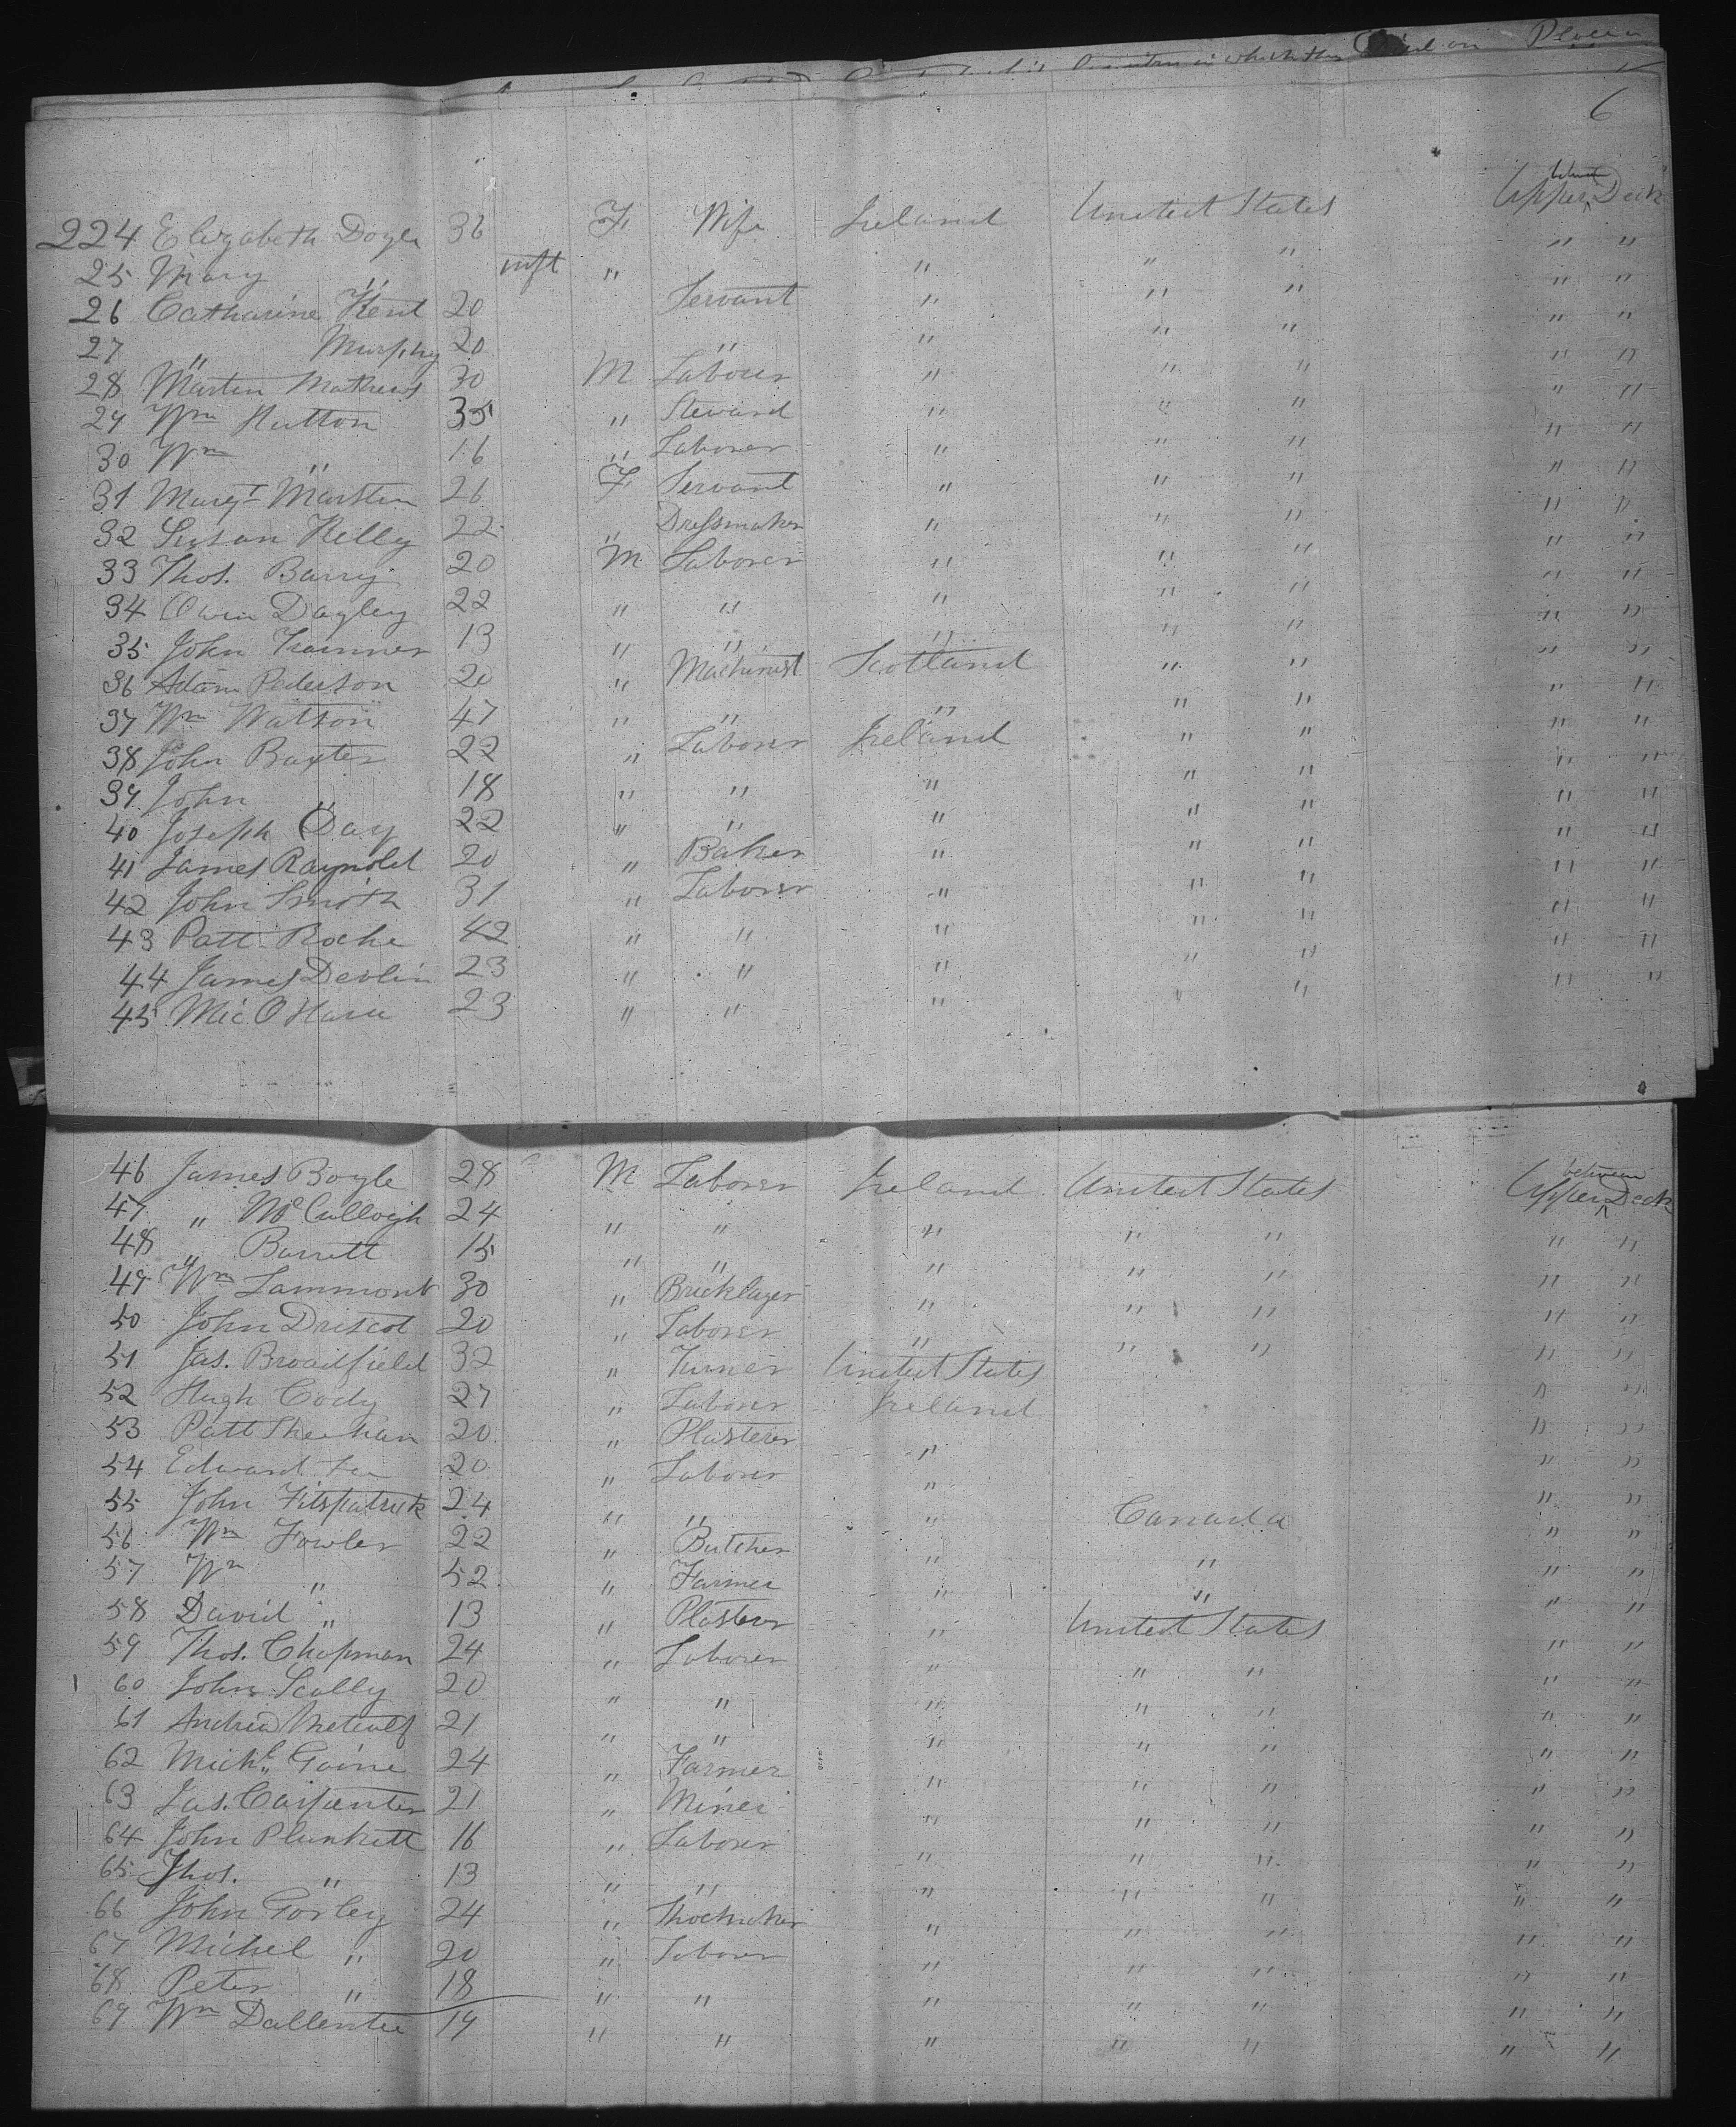 Countries in which they Died on Place in
6
224 Elizabeth Doyle 36 F. Wife Ireland United States Upper between Deck
25 Mary " inft " " " " " "
26 Catharine Kent 20 Servant " " " " "
27 " Murphy 20 " " " " " "
28 Martin Mathews 30 M Labour " " " " "
29 Wm Hutton 35 " Steward " " " " "
30 Wm " 16 " Laborer " " " " "
31 Margt Marsten 26 F. Servant " " " " "
32 Susan Kelly 22 " Dressmaker " " " " "
33 Thos. Barry 20 M Laborer " " " " "
34 Owen Dagley 22 " " " " " " "
35 John Trainner 13 " " " " " " "
36 Adam Pederson 20 " Machinist Scotland " " " "
37 Wm Watson 47 " " " " " " "
38 John Baxter 22 " Laborer Ireland " " " "
39 John " 18 " " " " " " "
40 Joseph Day 22 " " " " " " "
41 James Raynold 20 " Baker " " " " "
42 John Smith 31 " Laborer " " " " "
43 Patt Roche 42 " " " " " " "
44 James Devlin 23 " " " " " " "
45 Mic O Hara 23 " " " " " " "
46 James Boyle 28 M Laborer Ireland United States Upper between Deck
47 " McCullogh 24 " " " " " " "
48 " Barrett 15 " " " " " " "
49 Wm Lammont 30 " Bricklayer " " " " "
50 John Driscol 20 " Laborer " " " " "
51 Jas. Broadfield 32 " Turner United States " "
52 Hugh Cody 27 " Laborer Ireland " "
53 Patt Sheehan 20 " Plasterer " " "
54 Edward 20 " Laborer " " "
55 John Fitspatrick 24 " " " Canada " "
56 Wm Fowler 22 " Butcher " " " "
57 Wm " 52 " Farmer " " " "
58 David " 13 " Plasterer " United States " "
59 Thos. Chapman 24 " Laborer " " " " "
60 John Scally 20 " " " " " " "
61 Andrew Metcalf 21 " " " " " " "
62 Michl. Goine 24 " Farmer " " " " "
63 Jas. Carpenter 21 " Miner " " " " "
64 John Plunkett 16 " Laborer " " " " "
65 Thos. " 13 " " " " " " "
66 John Gorley 24 " Shoemaker " " " " "
67 Michel " 20 " Laborer " " " " "
68 Peter " 18 " " " " " " "
69 Wm Dallentee 19 " " " " " " "